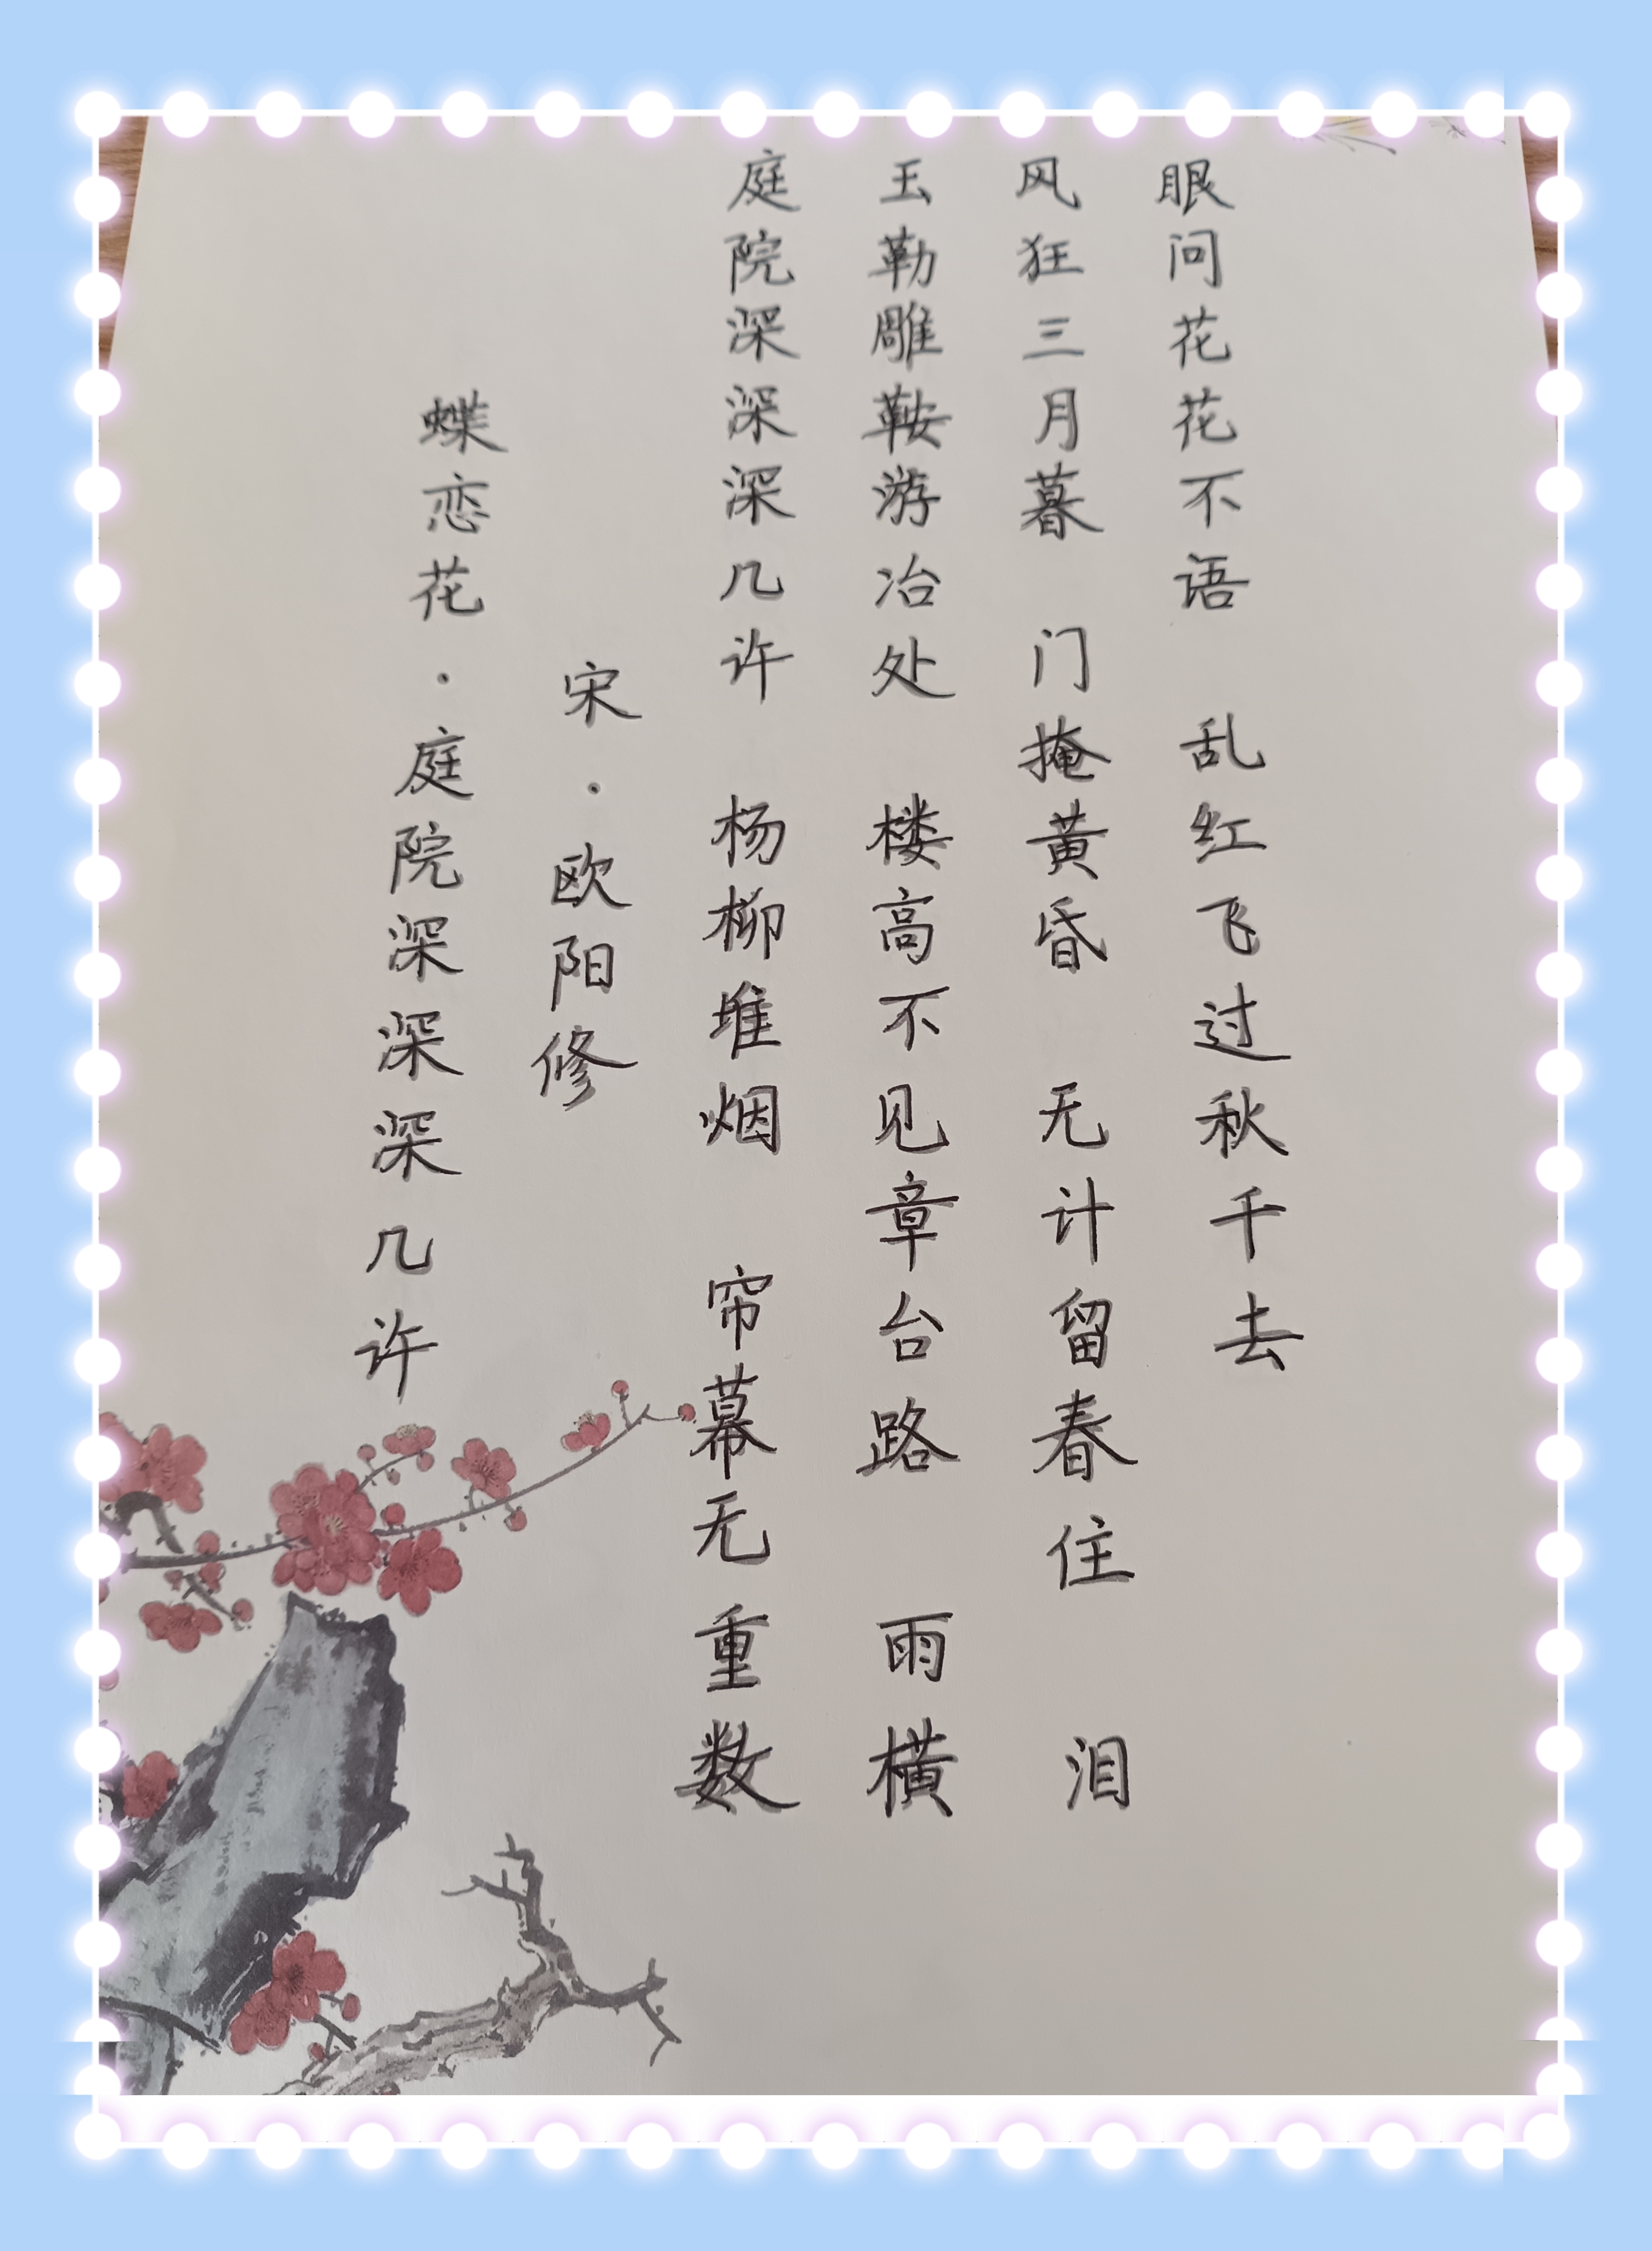 蝶恋花·庭院深深深几许
宋·欧阳修
庭院深深深几许 杨柳堆烟 帘幕无重数
玉勒雕鞍游冶处 楼高不见章台路 雨横
风狂三月暮 门掩黄昏 无计留春住 泪
眼问花花不语 乱红飞过秋千去